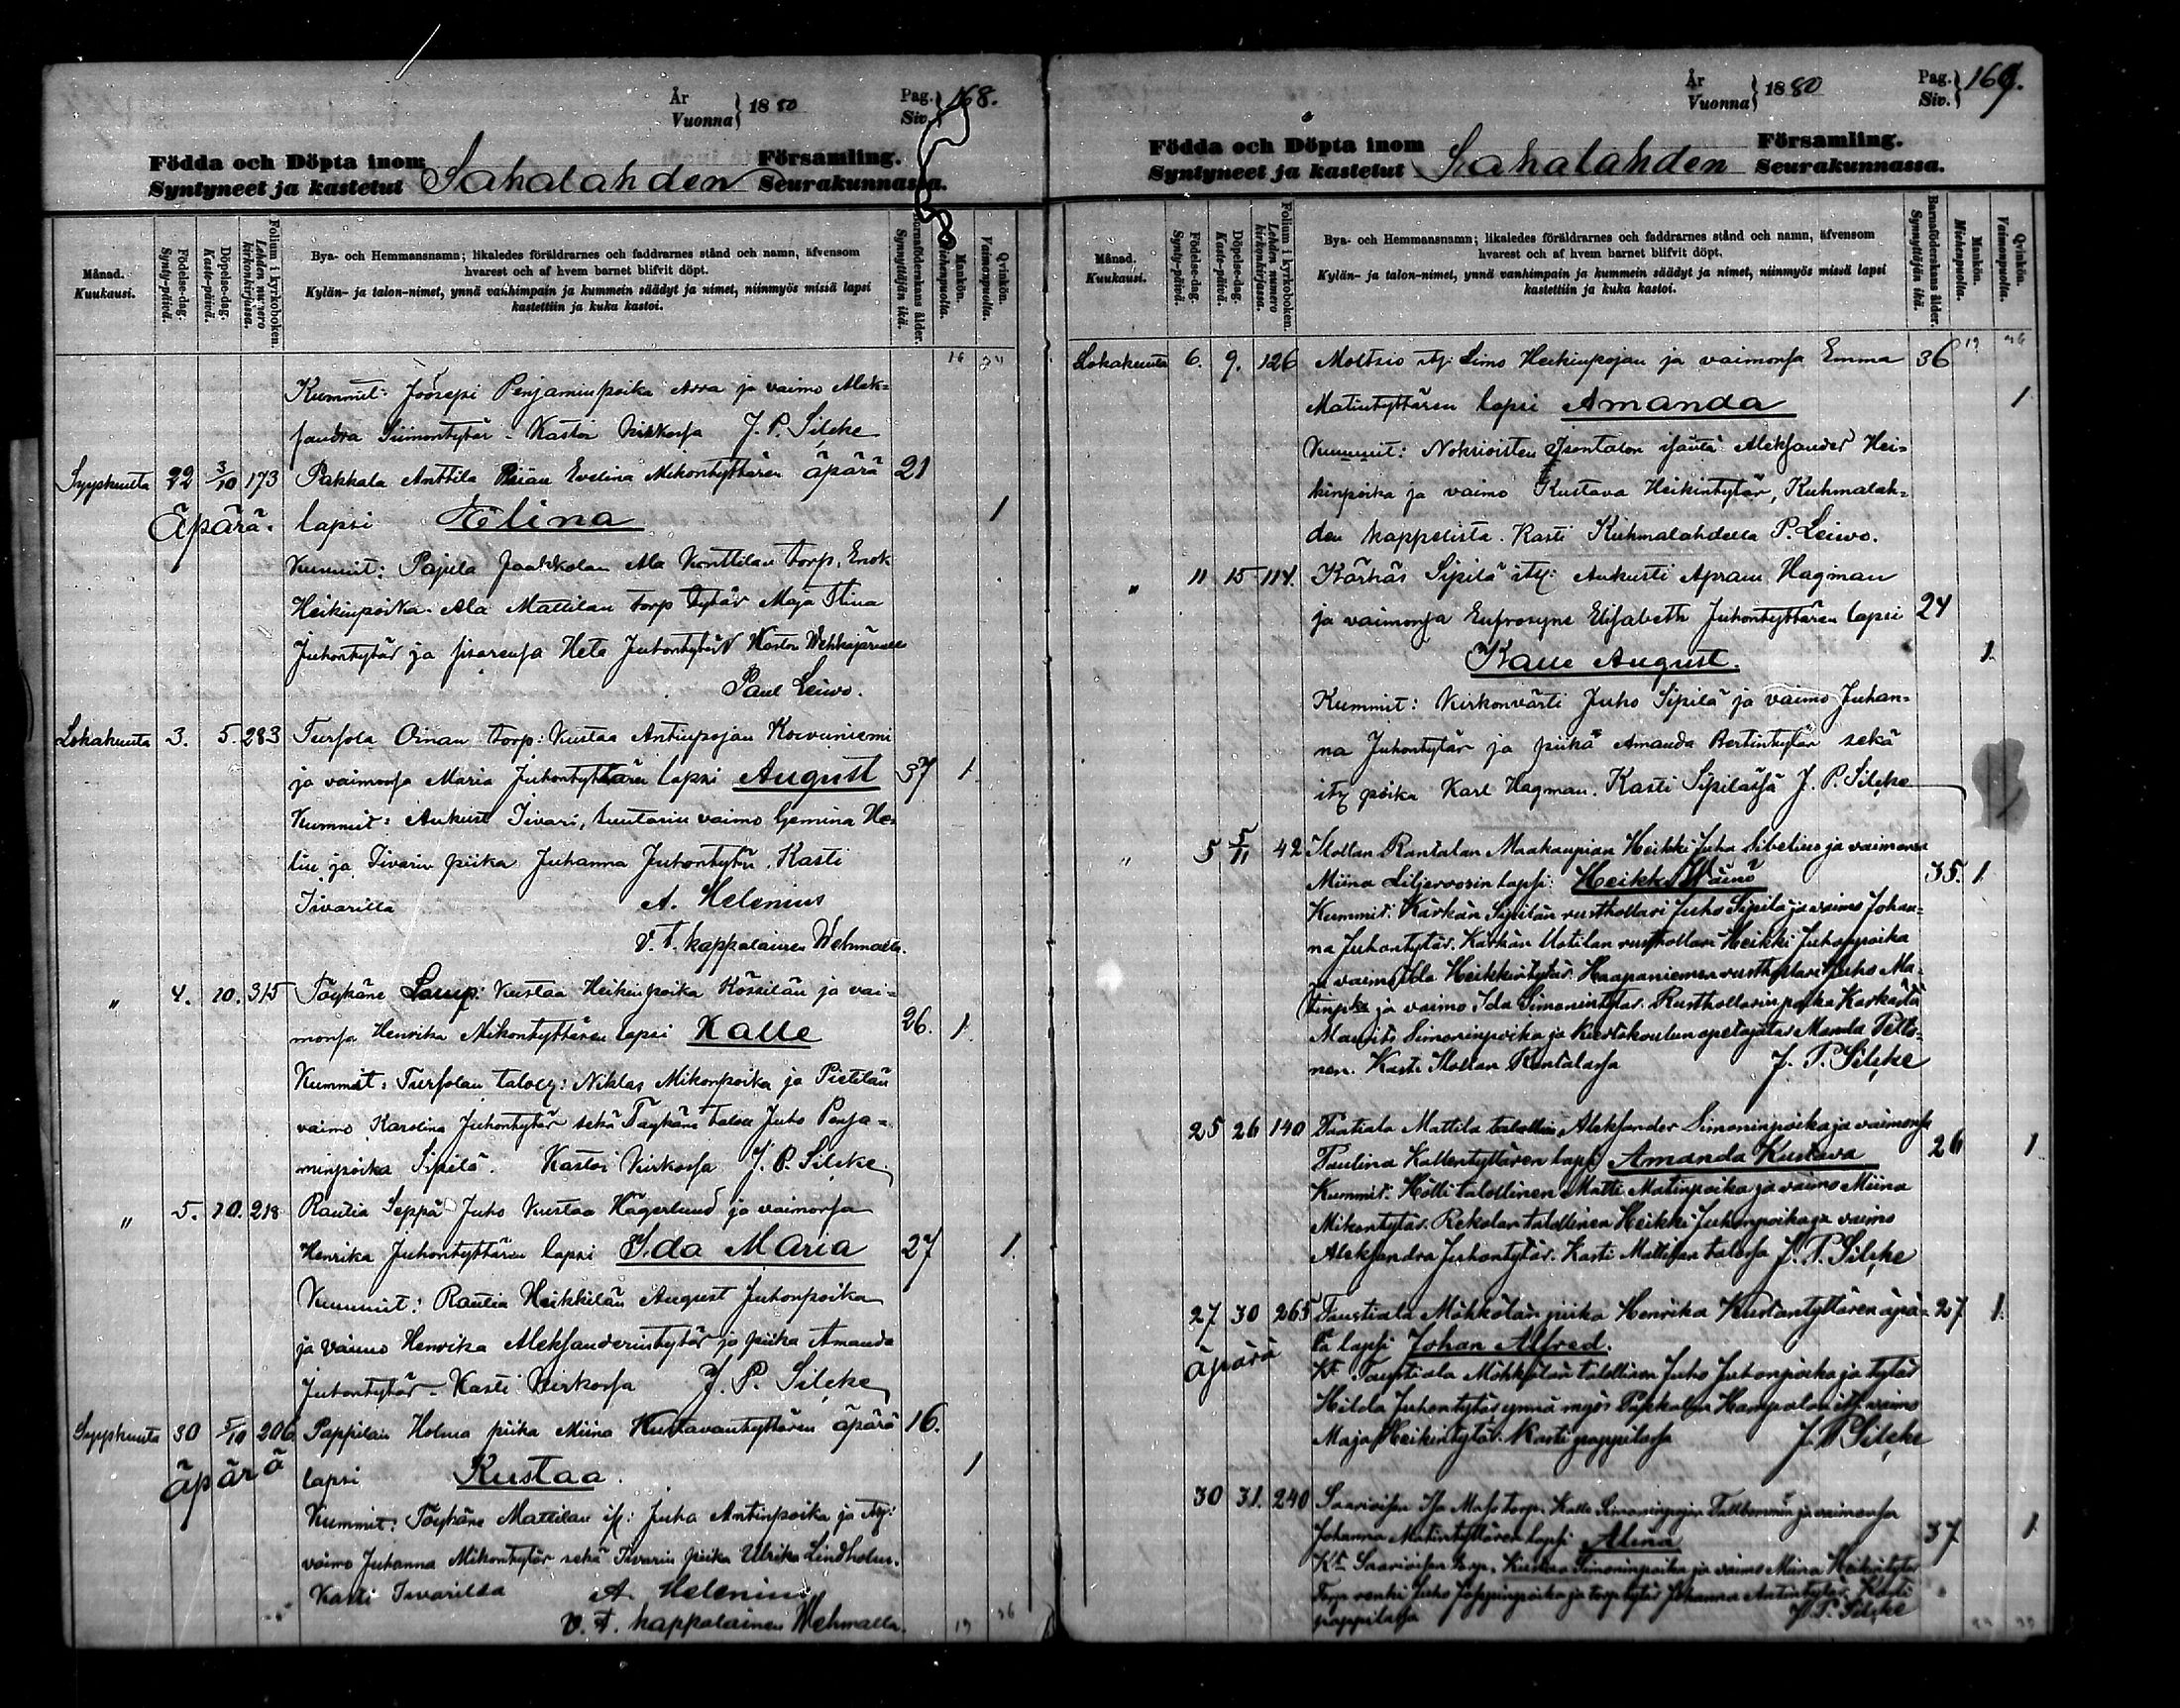 År
Vuonna } 1880
Pag.
Siv. } 168.
Födda och Döpta inom
Syntyneet ja kastetut Sahalahden Församling.
Seurakunnassa.
Månad.
Kuukausi.
Födelse-dag.
Synty-päivä.
Döpelse-dag.
Kaste-päivä.
Folium i kyrkoboken.
Lehden numero kirkonkirjassa.
Bya- och Hemmansnamn; likaledes föräldrarnes och faddrarnes stånd och namn, äfvensom
hvarest och af hvem barnet blifvit döpt.
Kylän- ja talon-nimet, ynnä vanhimpain ja kummein säädyt ja nimet, niinmyös missä lapsi
kastettiin ja kuka kastoi.
Barnaföderskans ålder.
Synnyttäjän ikä.
Mankön.
Miehenpuolta.
Qvinkön.
Vaimonpuolta.
Kummit: Joosepi Penjaminpoika Arra ja vaimo Alek=
sandra Siimontytär. Kastoi kirkossa J. P. Silcke
Syyskuuta 22 3/10 173 Pakkala Anttila Piian Evelina Mikontyttären äpärä 21
Äpärä. lapsi Elina 1
Kummit: Pajula Jaakkolan Ala Konttilan torp. Enok
Heikinpoika. Ala Mattilan torp tytär Maja Stina
Juhontytär ja sisarensa Heta Juhontytär Kastoi
Paul Leiwo.
Lokakuuta 3. 5. 283 Tursola Oinan torp: Kustaa Antinpojan Koivuniemi
ja vaimonsa Maria Juhontyttären lapsi August 37 1
Kummit: August Iivari, luutarin vaimo Gemina He-
lin ja Iivarin piika Juhanna Juhontytär. Kasti
Iivarilla A. Helenius
V. t. kappalainen Wehmaalla.
" 4. 10. 315 Töykäne Lamp: Kustaa Heikinpoika Kössilän ja vai=
monsa Henrika Mikontyttären lapsi Kalle 26. 1
Kummit: Tursolan talol: Niklas Mikonpoika ja Pietilän
vaimo Karolina Juhontytär sekä Töykäne talon Juho Penja=
minpoika Sipilä. Kastoi kirkossa J. P. Silcke
" 5. 10. 218 Rautia Seppä Juho Kustaa Hägerlund ja vaimonsa
Henrika Juhontyttären lapsi Ida Maria 27 1.
Kummit: Rautia Heikkilän August Juhonpoika
ja vaimo Henrika Aleksanderintytär ja piika Amanda
Juhontytär. Kasti kirkossa J. P. Silcke
Syyskuuta 30 5/10 206 Pappilan Holma piika Miina Kustavantyttären äpärä 16.
äpärä lapsi Kustaa. 1
Kummit: Töykäne Mattilan is: Juha Antinpoika ja
vaimo Juhanna Mikontytär sekä Iivarin piika Ulrika Lindholm.
Kasti Iivarilla A. Helenius
V. t. kappalainen Wehmaalla.
År
Vuonna } 1880
Pag.
Siv. } 169.
Födda och Döpta inom
Syntyneet ja kastetut Sahalahden Församling.
Seurakunnassa.
Månad.
Kuukausi.
Födelse-dag.
Synty-päivä.
Döpelse-dag.
Kaste-päivä.
Folium i kyrkoboken.
Lehden numero kirkonkirjassa.
Bya- och Hemmansnamn; likaledes föräldrarnes och faddrarnes stånd och namn, äfvensom
hvarest och af hvem barnet blifvit döpt.
Kylän- ja talon-nimet, ynnä vanhimpain ja kummein säädyt ja nimet, niinmyös missä lapsi
kastettiin ja kuka kastoi.
Barnaföderskans ålder.
Synnyttäjän ikä.
Mankön.
Miehenpuolta.
Qvinkön.
Vaimonpuolta.
Lokakuuta 6. 9. 126 Moltsio Simo Heikinpojan ja vaimonsa Emma 36
Matintyttären lapsi Amanda 1
Kummit: Nokrioisten Isontalon isäntä Aleksander Hei=
kinpoika ja vaimo Kustava Heikintytär, Kuhmalah=
den kappelista. Kasti Kuhmalahdella P. Leiwo.
" 11 15 114. Kärkäs Sipilä itj: Aukusti Apram Hagman
ja vaimonsa Eufrosyne Elisabeth Juhontyttären lapsi 24
Kalle August. 1.
Kummit: Kirkonvärti Juho Sipilä ja vaimo Juhan=
na Juhontytär ja piika Amanda Bertintytär sekä
itj poika Karl Hagman. Kasti Sipilässä J. P. Silcke
" 5 5/11 42 Rantalan Maakaupian Heikki Juha Sibelius ja vaimonsa
Miina Liljeroosin lapsi: Heikki Wäinö 35. 1
Kummit: Kärkän Sipilän rusthollari Juho Sipilä ja vaimo Johan=
na Juhontytär. Kärkän Uotilan rusthollari Heikki Juhonpoika
ja vaimo Ida Heikkintytär. Haapaniemen rusthollari Juho Ma=
tinpoika ja vaimo Ida Simonintytär. Rusthollarin poika Kärkästä
Maurits Simoninpoika ja Kiertokoulun opettajatar Manda Petto=
nen. Kasti Rantalassa J. P. Silcke
25 26 140 Tiatiala Mattila talollisen Aleksander Simoninpoika ja vaimonsa
Paulina Kallentyttären lapsi Amanda Kustava 26 1
Kummit: Hötti talollinen Matti Matinpoika ja vaimo Miina
Mikontytär. Rekolan talollinen Heikki Juhonpoika ja vaimo
Aleksandra Juhontytär. Kasti Mattilan talossa J. P. Silcke
27 30 265 Taustiala Möhkölän piika Henrika Kustantyttären äpä= 27 1.
äpärä rä lapsi Johan Alfred.
Kt Taustiala Möhkölän talollinen Juho Juhonpoika ja tytär
Hilda Juhontytär ynnä myös Pakkalan Hampolan itj vaimo
Maja Heikintytär. Kasti pappilassa J. P. Silcke
30 31. 240 Saarioisen Iso Maso torp. Kalle Simoninpojan ja vaimonsa
Johanna Matintyttären lapsi Alina 37 1
Kt Saarioisen torp. Kustaa Simoninpoika ja vaimo Miina Heikintytär
Torp renki Juho Josepinpoika ja torp tytär Johanna Antintytär. Kasti
pappilassa J. P. Silcke